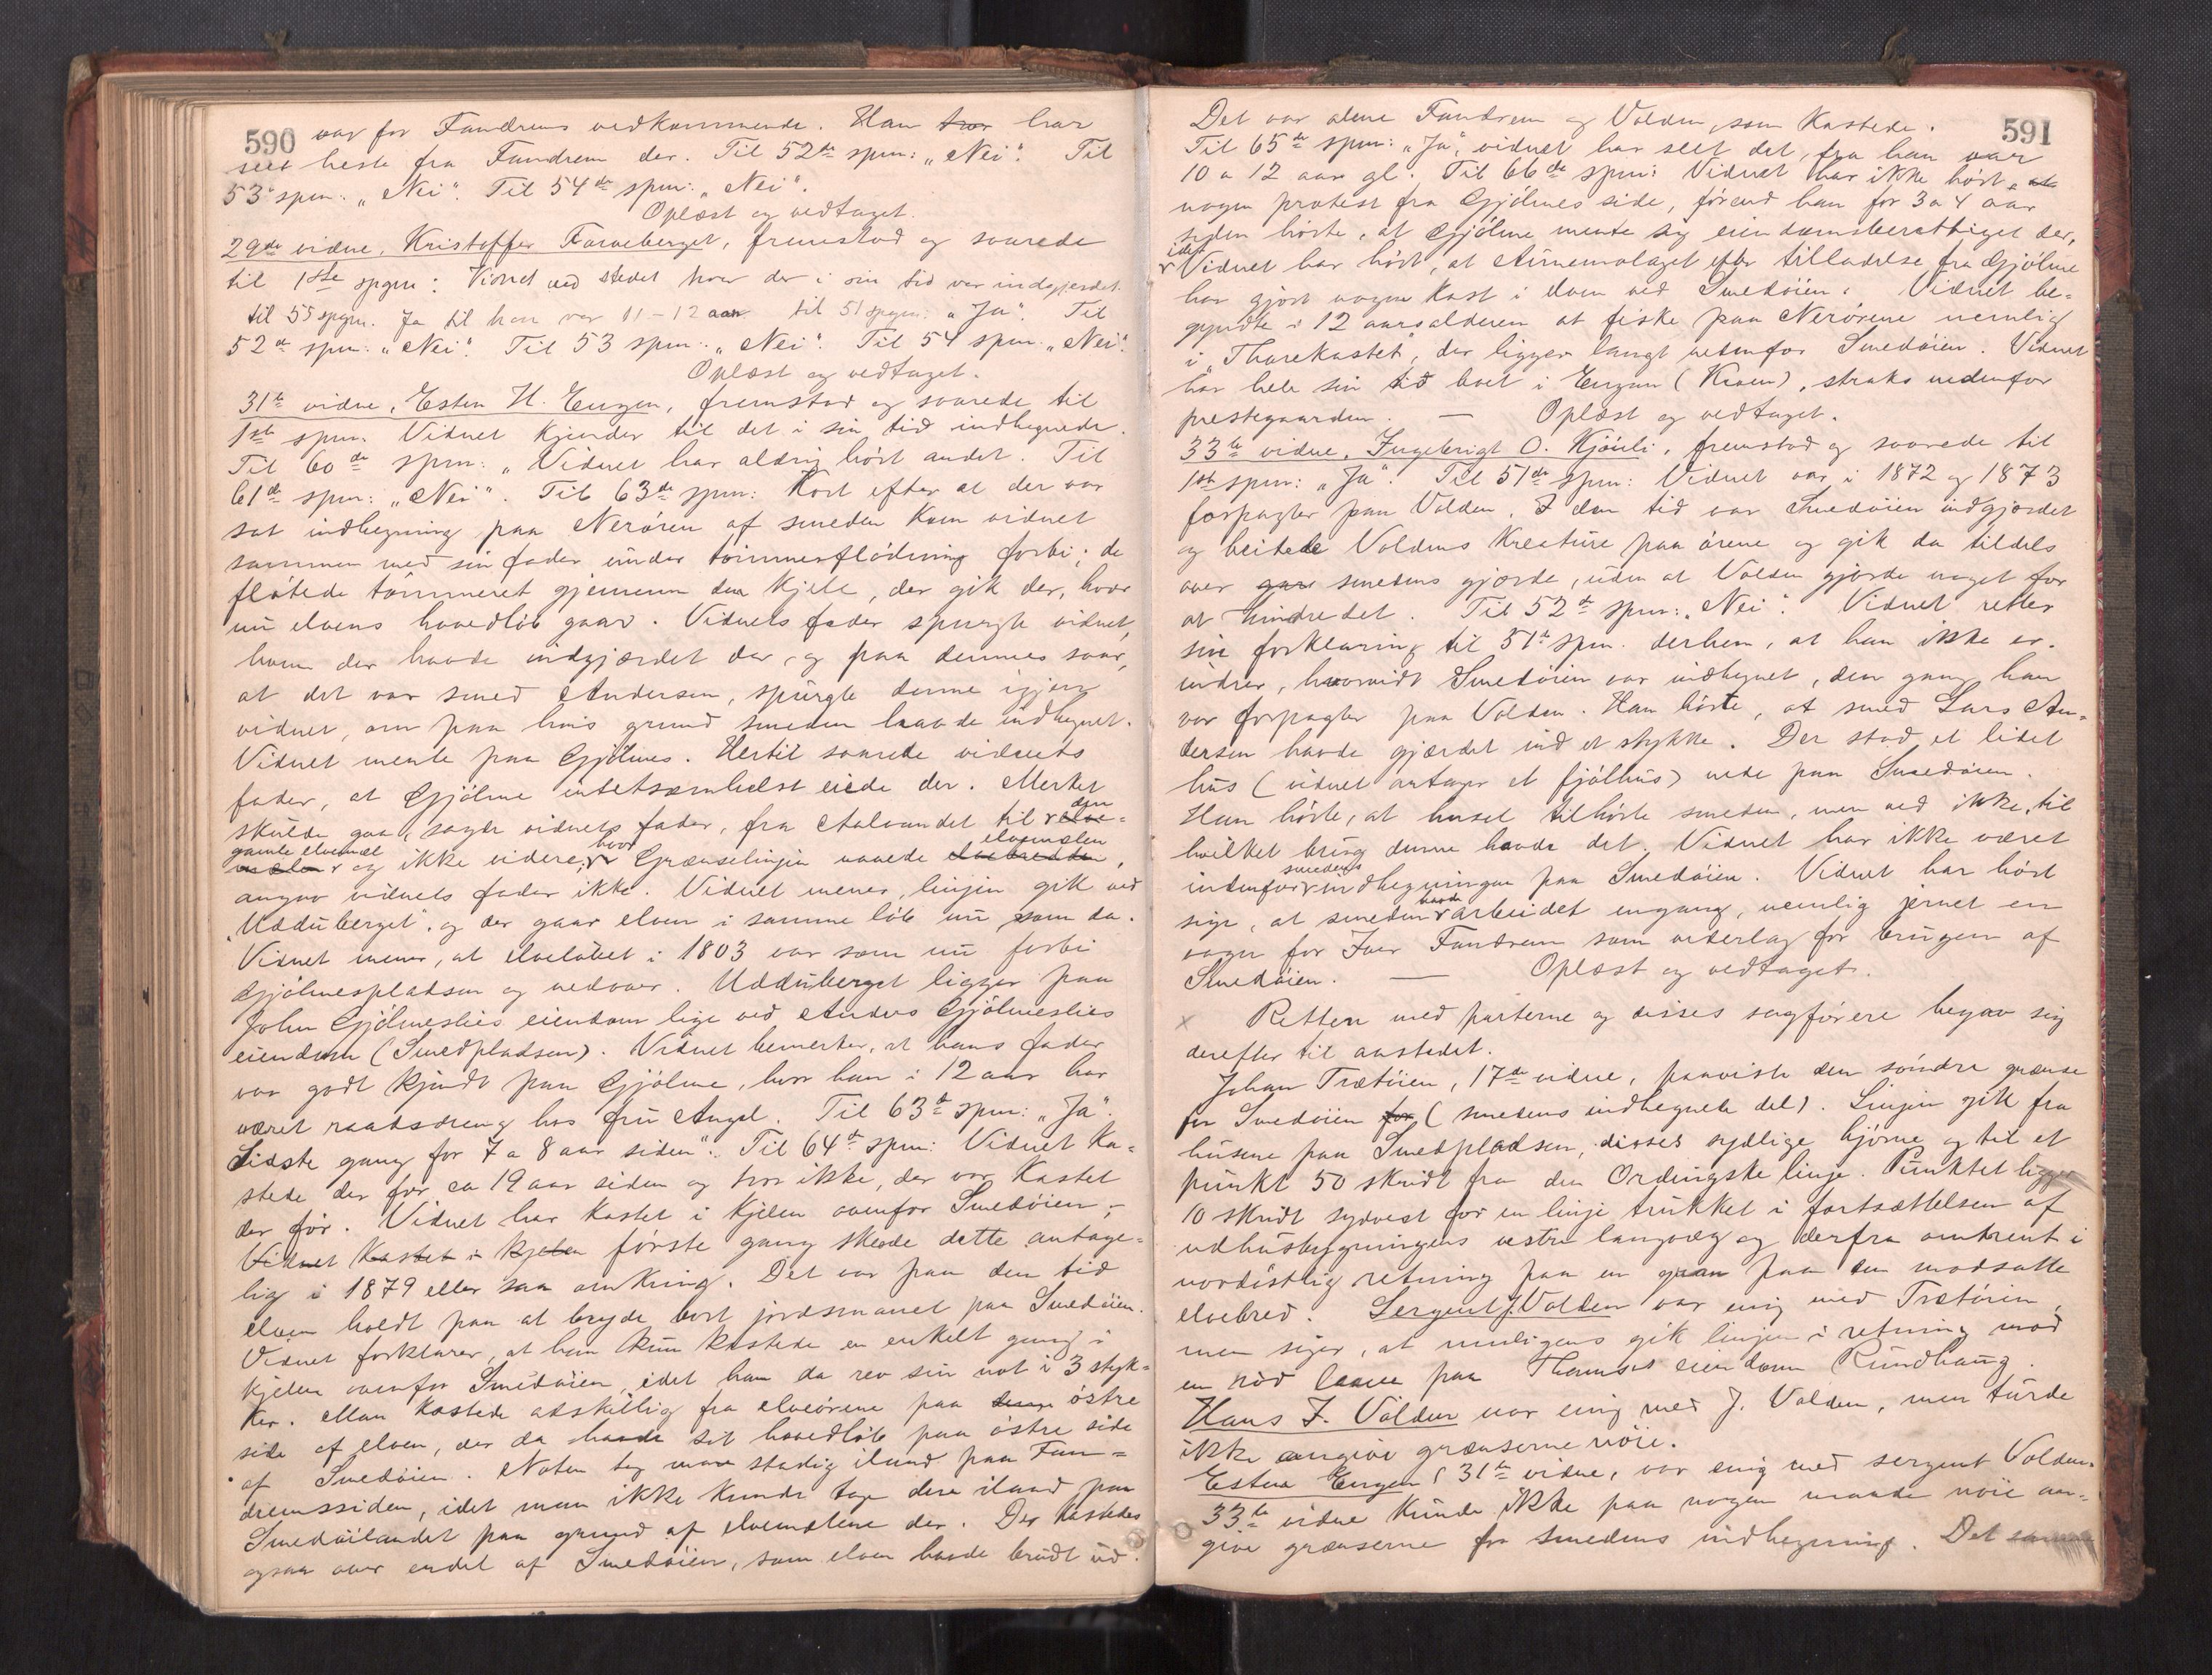 590 var for Fandrems vedkommende. Han tror har
seet heste fra Fandrem der. Til 52de spm: „Nei". Til
53 spm: „Nei". Til 54de spm: „Nei".
Oplæst og vedtaget.
29de vidne, Kristoffer Farveberget, fremstod og svarede
til 1ste spgm: Vidnet ved stedet hvor der i sin tid var indgjerdet.
til 55 spgm. Ja til han var 11-12 aar til 51 spgm: „Ja". Til
52de spm: „Nei". Til 53 spm: „Nei". Til 54 spm. „Nei".
Oplæst og vedtaget.
31te vidne, Esten H. Engen, fremstod og svarede til
1ste spm. Vidnet kjender til det i sin tid indhegnede.
Til 60de spm: „Vidnet har aldrig hört andet. Til
61de spm: „Nei". Til 63de spm: Kort efter at der var
sat indhegning paa Nerören af smeden kom vidnet
sammen med sin fader under tömmerflödning forbi; de
flötede tömmeret gjennem den kjele, der gik der, hvor
nu elvens hovedlöb gaar. Vidnets fader spurgte vidnet,
hvem der havde indgjærdet der, og paa dennes svar,
at det var smed Andersen, spurgte denne igjen
vidnet, om paa hvis grund smeden havde indhegnet.
Vidnet mente paa Gjölmes. Hertil svarede vidnets
fader, at Gjölme intetsomhelst eiede der. Merket
skulde gaa, sagde vidnets fader, fra Aalvandet til den elve=
gamle elvemæl og ikke videre; hvor Grænselinjen naaede elvebredden elvemælen,
angav vidnets fader ikke. Vidnet mener, linjen gik ved
„Udduberget", og der gaar elven i samme löb nu som da.
Vidnet mener, at elvelöbet i 1803 var som nu forbi
Gjölmespladsen og nedover. Udduberget ligger paa
John Gjölmeslies eiendom lige ved Anders Gjölmeslies
eiendom (Smedpladsen). Vidnet bemerker, at hans fader
var godt kjendt paa Gjölme, hvor han i 12 aar har
været raadsdreng hos fru Angel. Til 63de spm: „Ja".
Sidste gang for 7 a 8 aar siden". Til 64de spm: Vidnet ka=
stede der for ca 19 aar siden og tror ikke, der var kastet
der för. Vidnet har kastet i kjelen ovenfor Smedöien;
Vidnet kastet i kjelen förste gang skede dette antage=
lig i 1879 eller saa omkring. Det var paa den tid
elven holdt paa at bryde bort jordsmonet paa Smedöien.
Vidnet forklarer, at han kun kastede en enkelt gang i
kjelen ovenfor Smedöien, idet han da rev sin not i 3 styk=
ker. Man kastede adskillig fra elveörene paa denne östre
side af elven, der da havde sit hovedlöb paa östre side
af Smedöien. Noten tog man stadig iland paa Fan=
dremssiden, idet man ikke kunde tage den iland paa
Smedöilandet paa grund af elvemælene der. Der kastedes
ogsaa over endel af Smedöien, som elven havde brudt ud.
591
Det var alene Fandrem og Volden, som kastede.
Til 65de spm: „Ja", vidnet har seet det, fra han var
10 a 12 aar gl. Til 66de spm: Vidnet har ikke hört, at
nogen protest fra Gjölmes side, förend han for 3 a 4 aar
siden hörte, at Gjölme mente sig eiendomsberettiget der,
idet Vidnet har hört, at Almemolaget efter tilladelse fra Gjölme
har gjort nogen kast i elven ved Smedöien. Vidnet be=
gyndte i 12 aarsalderen at fiske paa Nerörene nemlig
i „Tharekastet", der ligger langt nedenfor Smedöien. Vidnet
har hele sin tid boet i Engan (Kroen), straks nedenfor
prestegaarden. — Oplæst og vedtaget.
33te vidne, Ingebrigt O. Kjöuli, fremstod og svarede til
1ste spm: „Ja". Til 51de spm: Vidnet var i 1872 og 1873
forpagter paa Volden. I den tid var Smedöien indgjordet
og beitede Voldens kreature paa örene og gik da tildels
over gav smedens gjærde, uden at Volden gjorde noget for
at hindre det. Til 52de spm: „Nei". Vidnet retter
sin forklaring til 51de spm. derhen, at han ikke er=
indrer, hvorvidt Smedöien var indhegnet, den gang han
var forpagter paa Volden. Han hörte, at smed Lars An=
dersen havde gjærdet ind et stykke. Der stod et lidet
hus (vidnet antager et fjölhus) nede paa Smedöien.
Han hörte, at huset tilhörte smeden, men ved ikke, til
hvilket brug denne havde det. Vidnet har ikke været
indenfor smedens indhegningen paa Smedöien. Vidnet har hört
sige, at smeden havde arbeidet engang, nemlig jernet en
vogn for Iver Fandrem som vederlag for brugen af
Smedöien. — Oplæst og vedtaget.
x Retten med parterne og disses sagförere begav sig
derefter til aastedet.
Johan Trætöien, 17de vidne, paaviste den söndre grænse
for Smedöien for (smedens indhegnede del). Linjen gik fra
husene paa Smedpladsen, disses sydlige hjörne og til et
punkt 50 skridt fra den Ordingske linje. Punktet ligger
10 skridt sydvest for en linje trukket i fortsættelsen af
udhusbygningens vestre langvæg og derfra omtrent i
nordöstlig retning paa en gran paa den modsatte
elvebred. Sergent J. Volden var enig med Trætöien,
men siger, at muligens gik linjen i retning mod
en röd laave paa Thams's eiendom Rundhaug.
Hans J. Volden var enig med J. Volden, men turde
ikke angive grænserne nöie.
Esten Engen, 31te vidne, var enig med sergent Volden.
33te vidne kunde ikke paa nogen maade nöie an=
give grænserne for smedens indhegning. Det samme